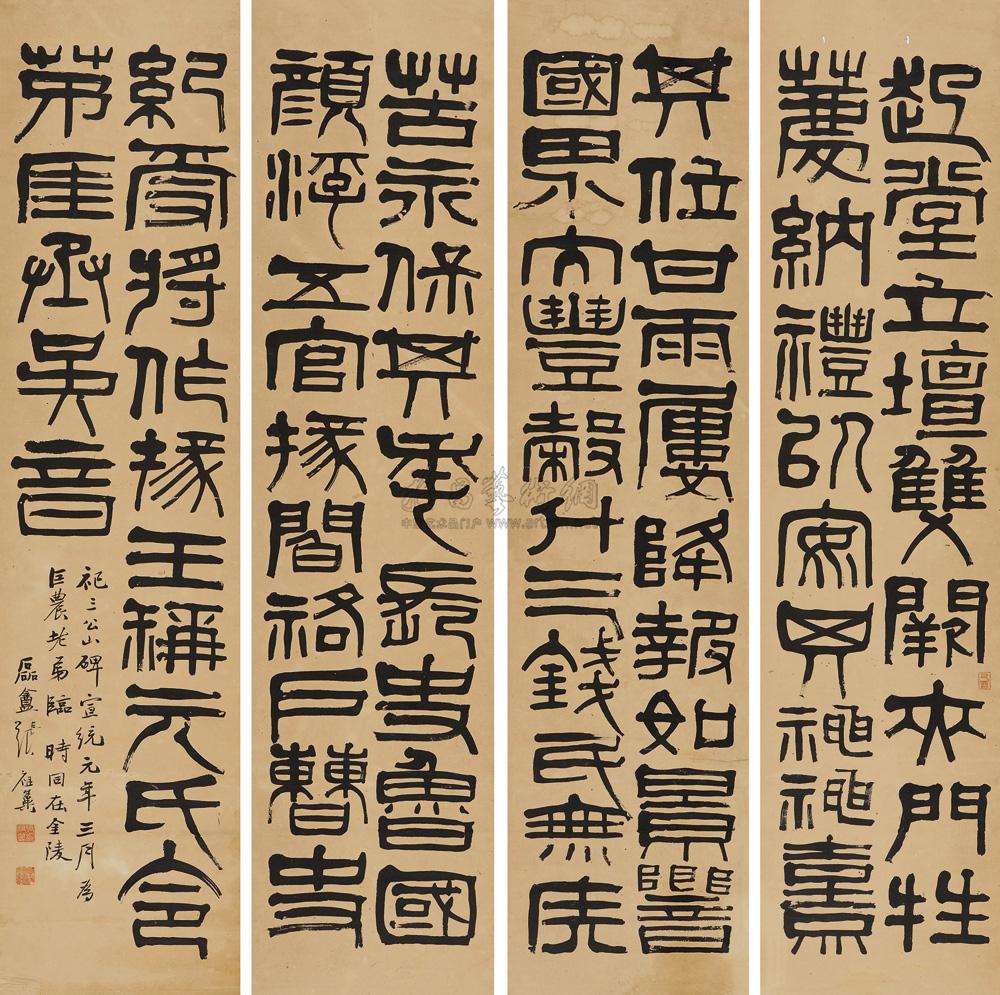 起堂立壇雙闕夾門牲
薦納禮以寧其神神熹
其位甘雨屢降報如景響
國界大豐穀斗三錢民無疾
苦永保其年長史魯國
顏浮五官掾閻祐戶曹史
紀受將作掾王稱元氏令
茅匡丞吳音
祀三公山碑宣統元年三月為
匡農老弟臨時同在金陵
磊盦張祖翼